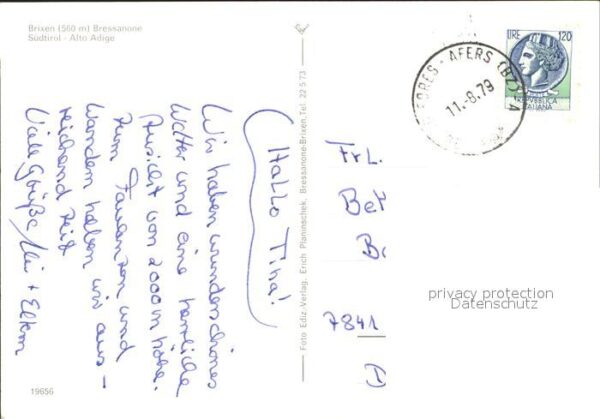 Brixen (560 m) Bressanone
Südtirol - Alto Adige
Hallo Tina!
Wir haben wunderschönes
Wetter und eine herrliche
Aussicht von 2000 m Höhe.
Zum Faulenzen und
Wandern haben wir aus-
reichend Zeit
Viele Grüße, + Eltern
Foto Ediz-Verlag, Erich Planinschek, Bressanone-Brixen, Tel. 22 5 73
AFERS (BZ)
11.-8.79
LIRE 120
REPVBBLICA
ITALIANA
Frl.
Be
B
7841
D
privacy protection
Datenschutz
19656